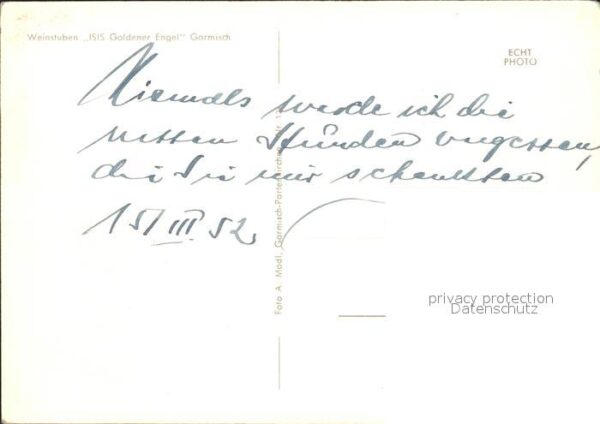 Weinstuben „ISIS Goldener Engel" Garmisch
ECHT
PHOTO
Niemals werde ich die
netten Stunden vergessen,
die Sie mir schenkten
15/III. 52.
Foto A. Modl, Garmisch-Partenkirchen
privacy protection
Datenschutz